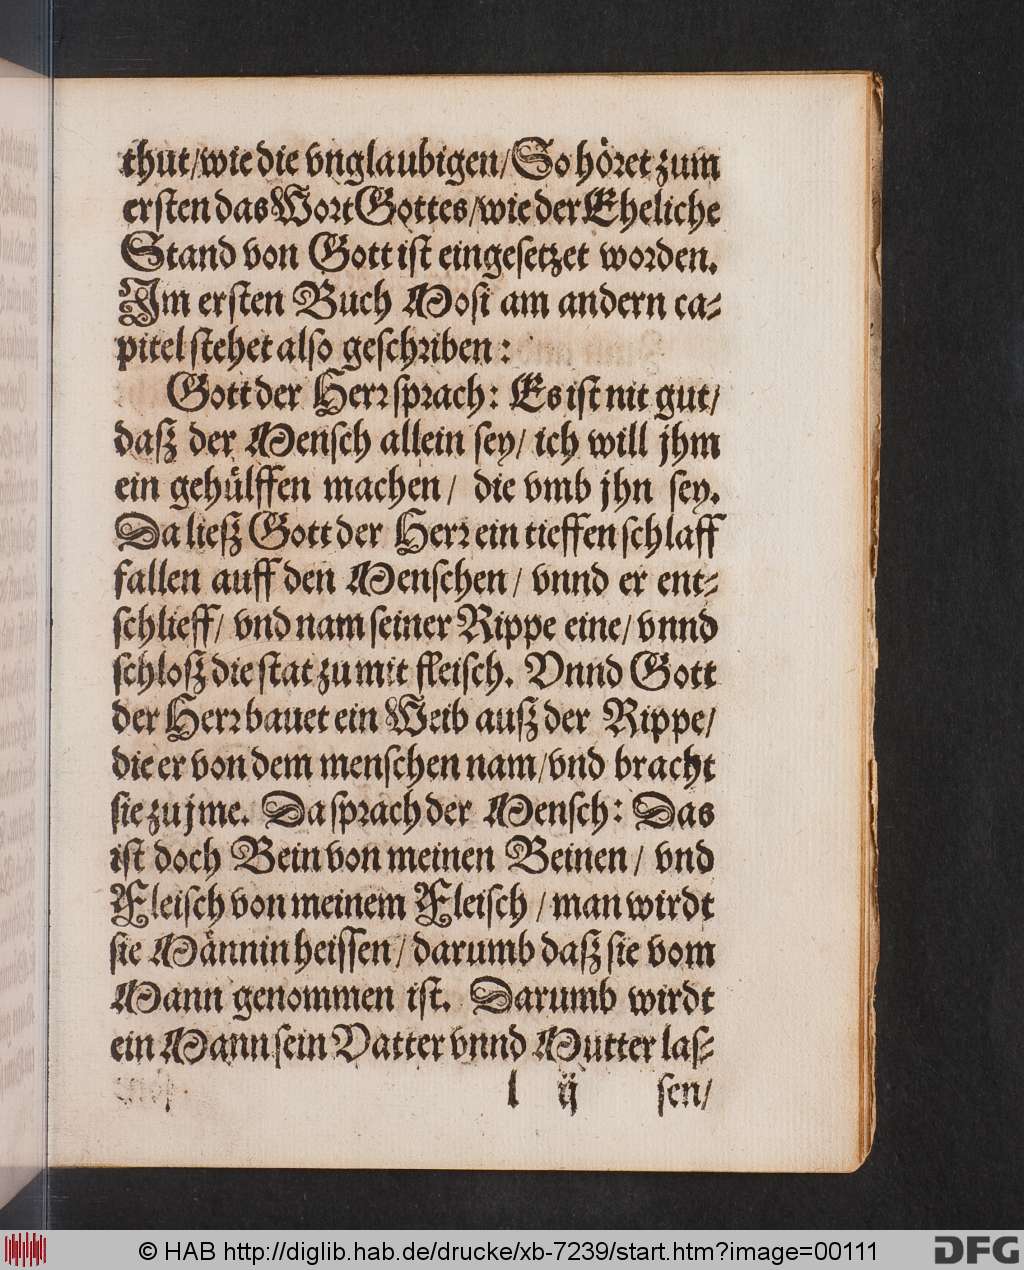 thut/wie die vnglaubigen/So höret zum
ersten das Wort Gottes/wie der Eheliche
Stand von Gott ist eingesetzet worden.
Im ersten Buch Mosi am andern ca-
pitel stehet also geschriben:
Gott der Herr sprach: Es ist nit gut/
daß der Mensch allein sey/ ich will jhm
ein gehülffen machen/ die vmb jhn sey.
Da ließ Gott der Herr ein tieffen schlaff
fallen auff den Menschen/ vnnd er ent-
schlieff/ vnd nam seiner Rippe eine/ vnnd
schloß die stat zu mit fleisch. Vnnd Gott
der Herr bauet ein Weib auß der Rippe/
die er von dem menschen nam/vnd bracht
sie zu jme. Da sprach der Mensch: Das
ist doch Bein von meinen Beinen/ vnd
Fleisch von meinem Fleisch/man wirdt
sie Männin heissen/darumb daß sie vom
Mann genommen ist. Darumb wirdt
ein Mann sein Vatter vnnd Mutter las-
l ij sen/
© HAB http://diglib.hab.de/drucke/xb-7239/start.htm?image=00111
DFG